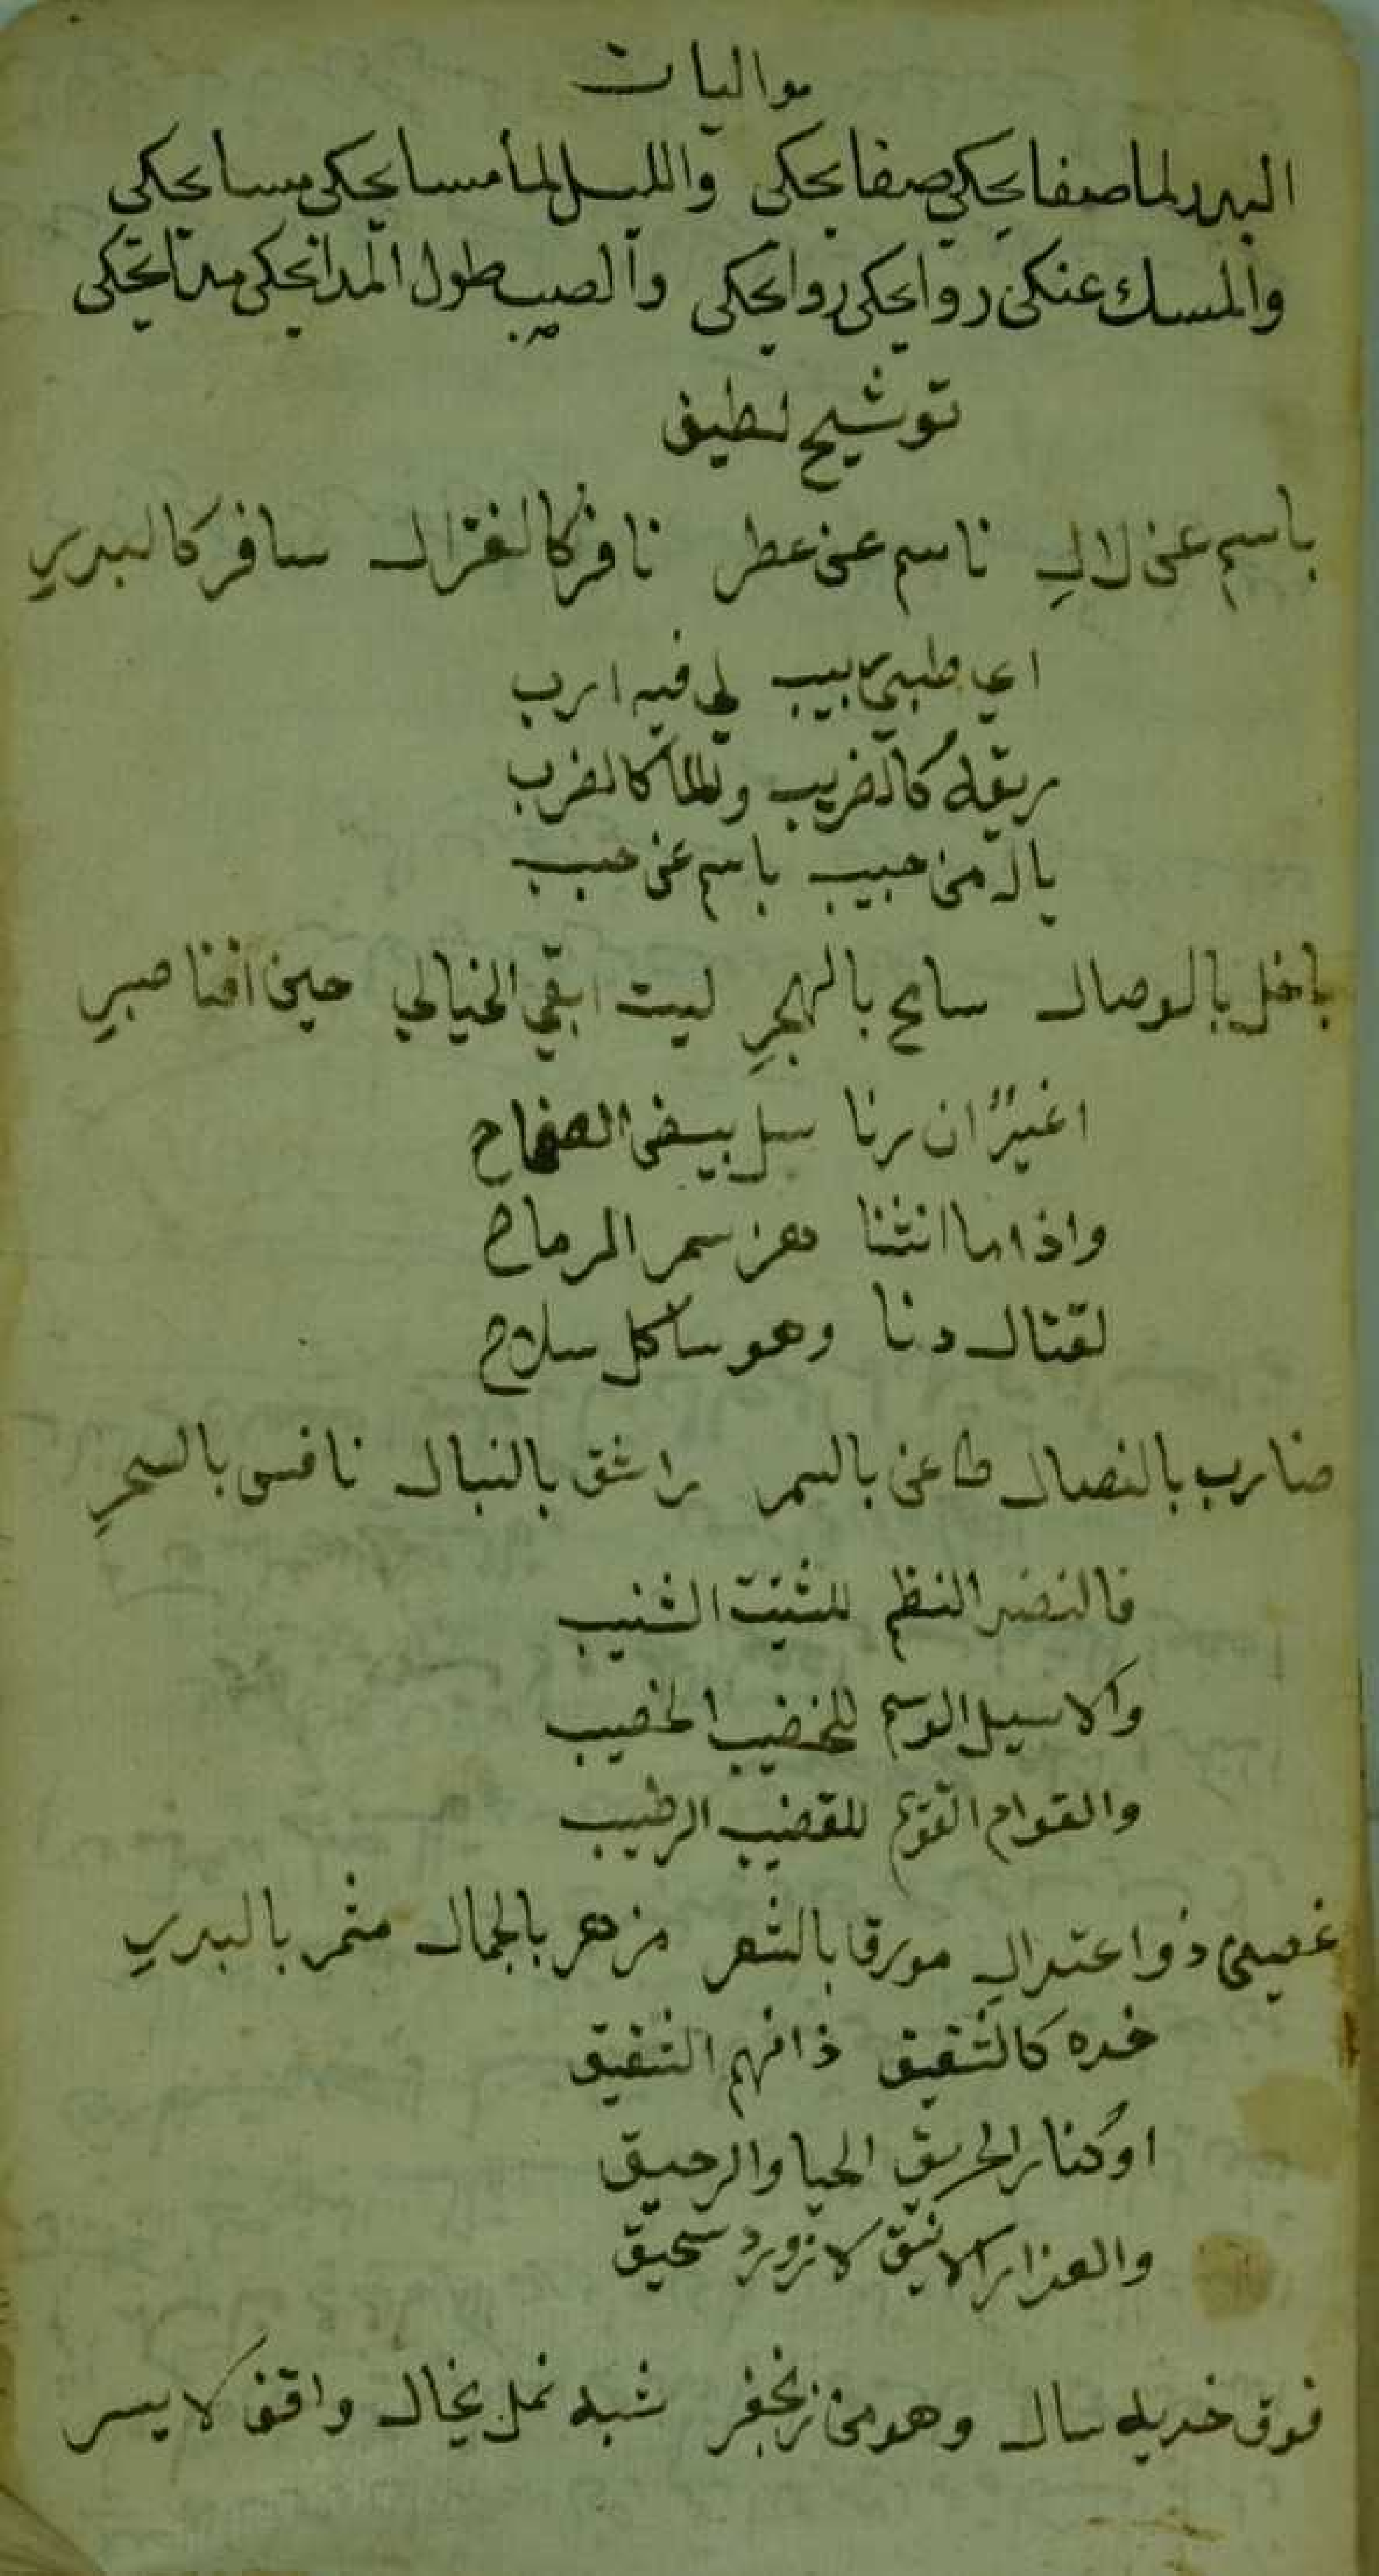 مواليات
البدر لما صفا يحكي صفايحكي والليل لما مسا يحكي مسايحكي
والمسك عنكي روايحكي روايحكي والصب طول المدا يحكي مدايحكي
توشيح لطيف
باسم عن لالِ ناسم عن عطر نافر كالغزال سافر كالبدرِ
اي ربيب لي فيه ارب
ريقه كالضريب واللما كالضرب
يال من حبيب باسم عن حبب
باخل بالوصال سامح بالهجرِ ليت ابقي الخيالي حين افنا صبرِ
ان رنا سل بيض الصفاح
واذا ما انثنا هز سمر الرماح
لقتال دنا وهو شاكل سلاح
ضارب بالنصال طاعن بالسمر راشق بالنبال نافس بالسحرِ
فالنضر النظم للشتيت الشنيب
والاسيل الوسيم للخضيب الخصيب
والقوام القويم للقضيب الرطيب
ذو اعتدالِ مورقا بالشعر مزهر بالجمال مثمر بالبدرِ
خده كالشقيق الشقيق
اوكنار الحريق الحيا والرحيق
والعذار الانيق لازورد سحيق
فوق خديه سال وهو من زنجفر شبه نمل بخال واقف لا يسر